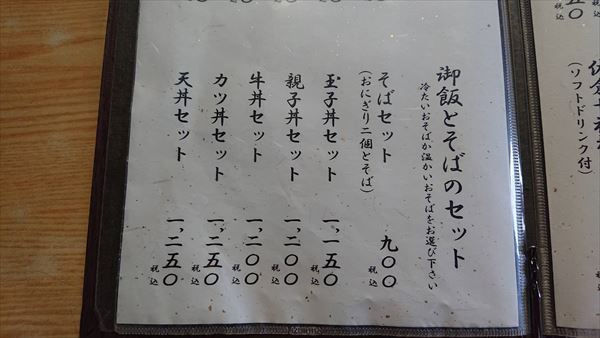 御飯とそばのセット
冷たいおそばか温かいおそばをお選び下さい
そばセット 九〇〇 税込
(おにぎり二個とそば)
玉子丼セット 一,一五〇 税込
親子丼セット 一,二〇〇 税込
牛丼セット 一,二〇〇 税込
カツ丼セット 一,二五〇 税込
天丼セット 一,二五〇 税込
(ソフトドリンク付)
五〇 税込